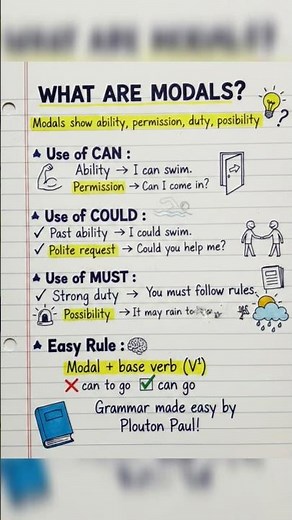 WHAT ARE MODALS?
Modals show ability, permission, duty, posibility
Use of CAN :
Ability → I can swim.
Permission → Can I come in?
Use of COULD :
✓ Past ability → I could swim.
✓ Polite request → Could you help me?
Use of MUST :
✓ Strong duty → You must follow rules.
Possibility → It may rain
Easy Rule :
Modal + base verb (V¹)
❌ can to go ✅ can go
Grammar made easy by
Plouton Paul!